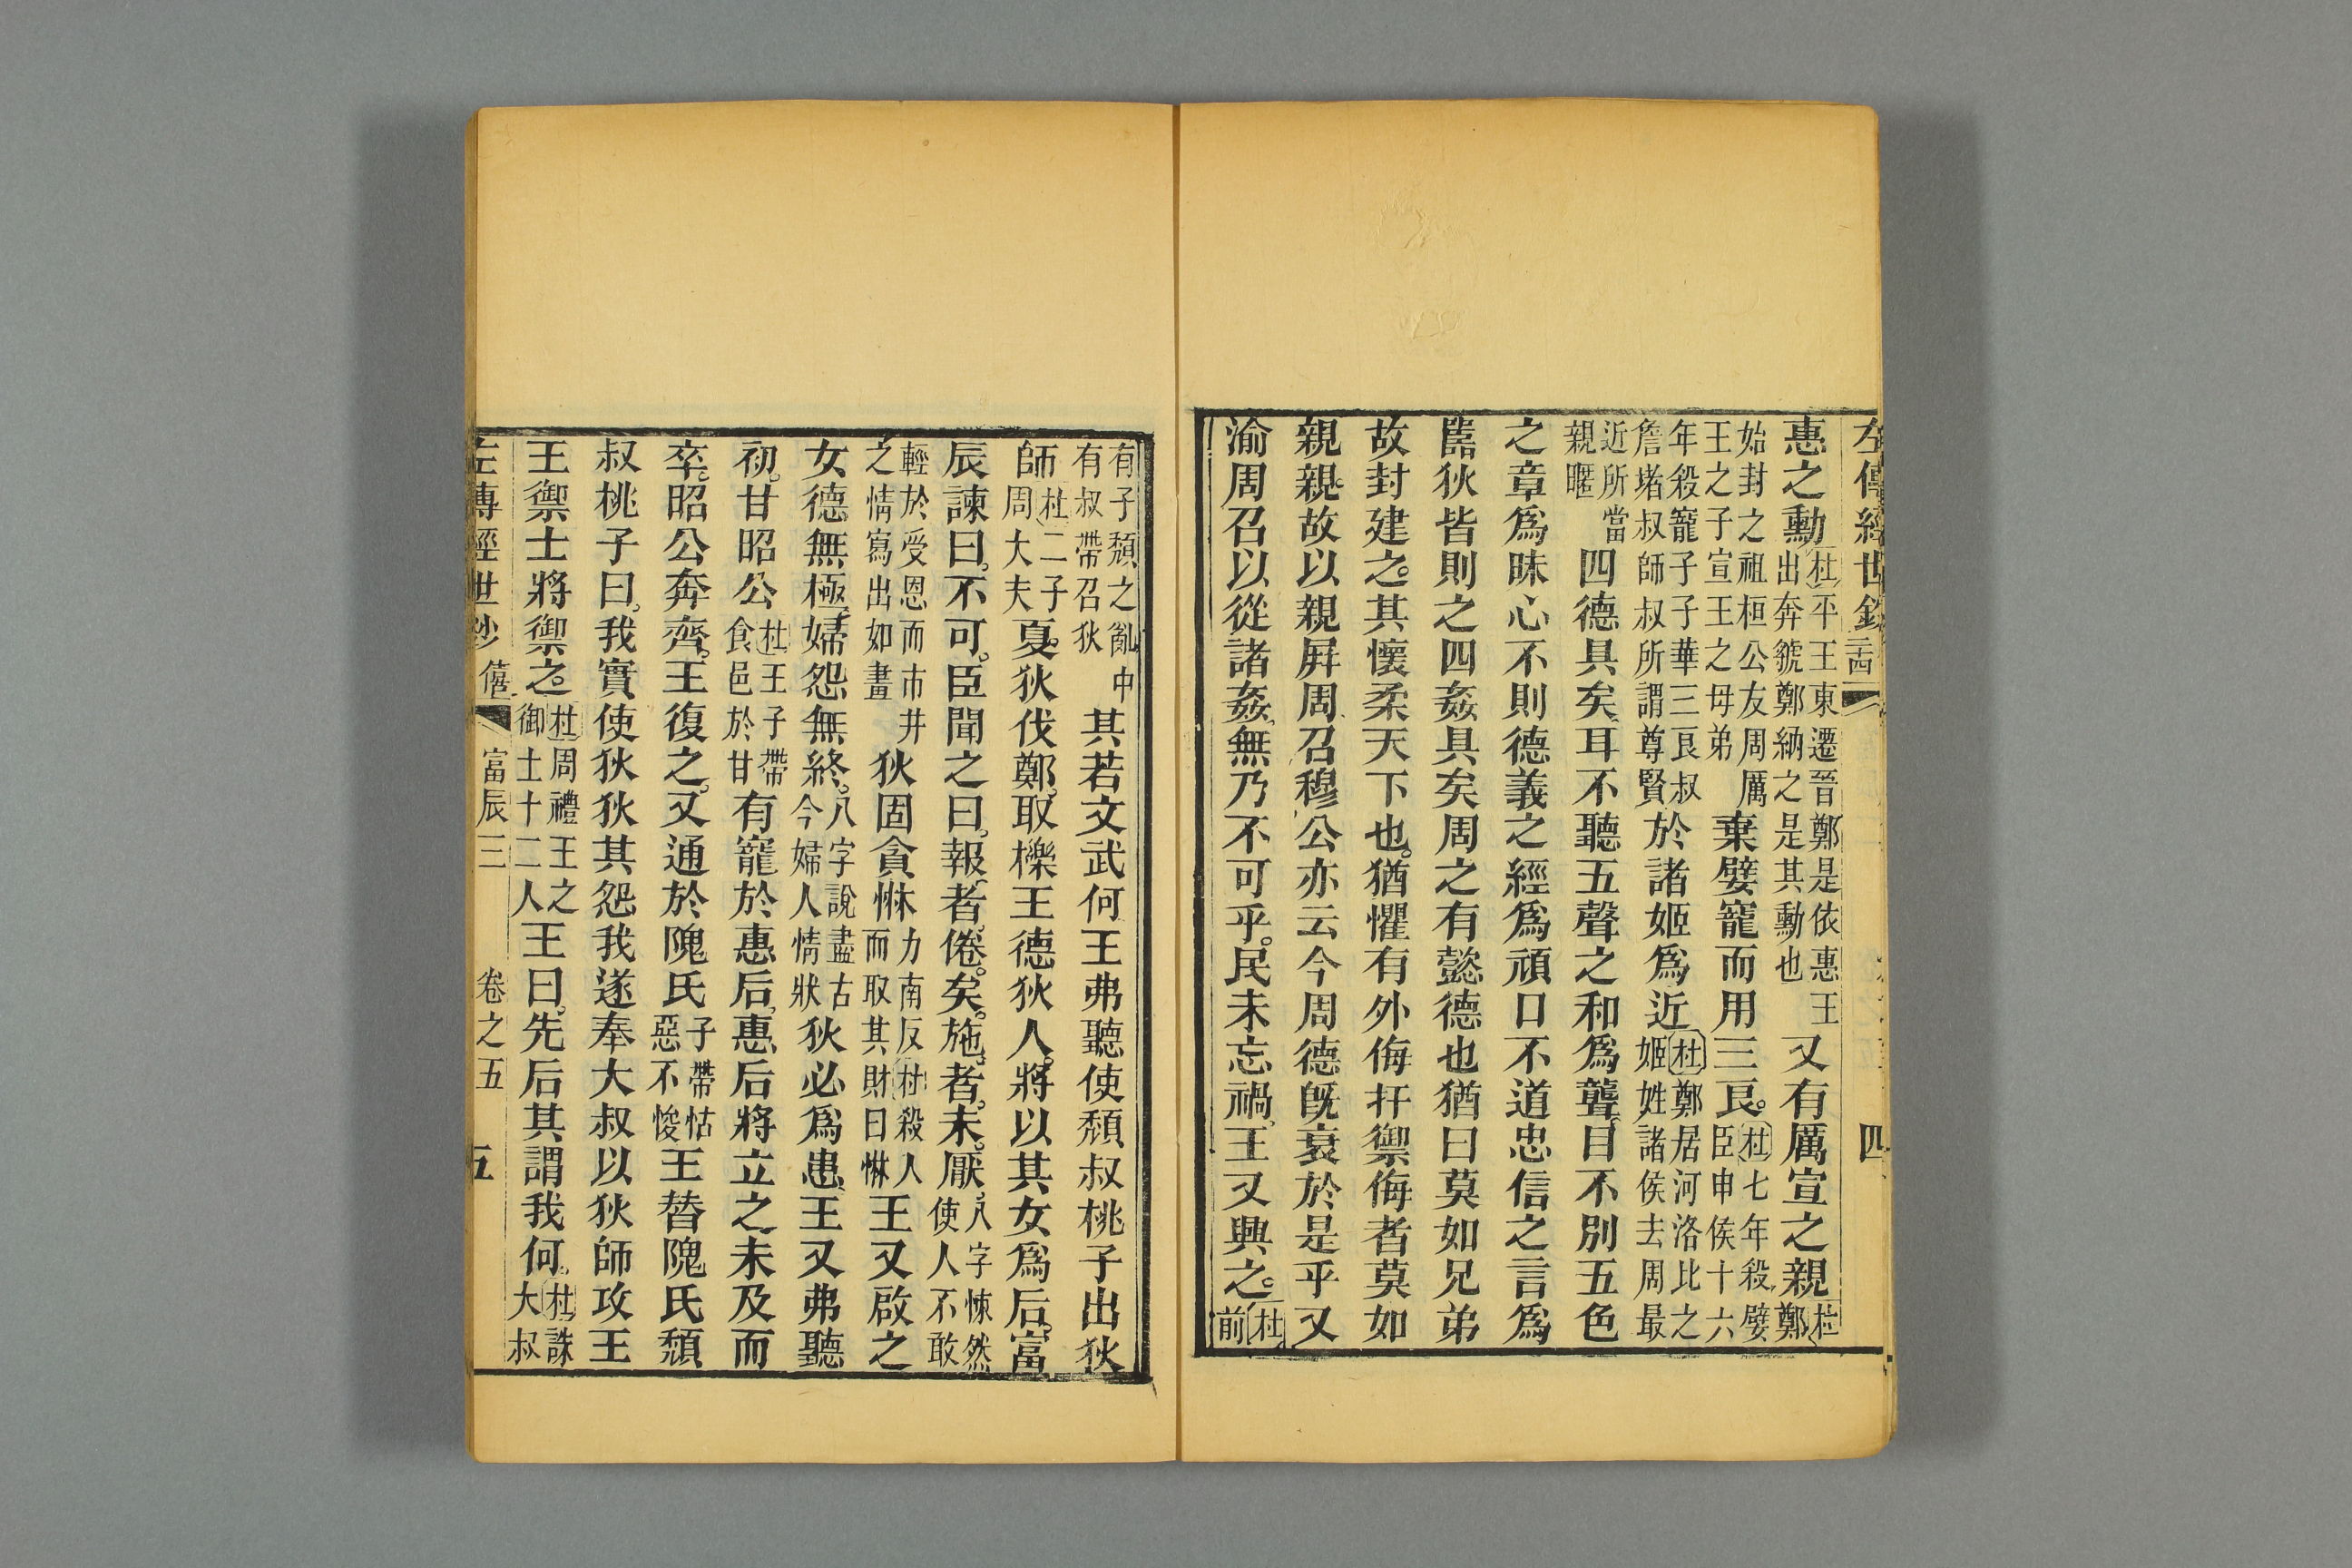 左傳經世鈔
四
惠之勳杜平王東遷晉鄭是依惠王出奔虢鄭納之是其勳也又有厲宣之親杜鄭
始封之祖桓公友周厲王之子宣王之母弟棄嬖寵而用三良杜七年殺嬖臣申侯十六
年殺寵子子華三良叔詹堵叔師叔所謂尊賢於諸姬爲近杜鄭居河洛比之姬姓諸侯去周最
近所當親暱四德具矣耳不聽五聲之和爲聾目不別五色
之章爲昧心不則德義之經爲頑口不道忠信之言爲
嚚狄皆則之四姦具矣周之有懿德也猶曰莫如兄弟
故封建之其懷柔天下也猶懼有外侮扞禦侮者莫如
親親故以親屏周召穆公亦云今周德旣衰於是乎又
渝周召以從諸姦無乃不可乎民未忘禍王又興之杜前
有子頹之亂中有叔帶召狄其若文武何王弗聽使頹叔桃子出狄
師杜二子周大夫夏狄伐鄭取櫟王德狄人將以其女爲后富
辰諫曰不可臣聞之曰報者倦矣施者未厭八字悚然使人不敢
輕於受恩而市井之情寫出如畫狄固貪惏力南反杜殺人而取其財曰惏王又啟之
女德無極婦怨無終八字說盡古今婦人情狀狄必爲患王又弗聽
初甘昭公杜王子帶食邑於甘有寵於惠后惠后將立之未及而
卒昭公奔齊王復之又通於隗氏子帶怙惡不悛王替隗氏頹
叔桃子曰我實使狄狄其怨我遂奉大叔以狄師攻王
王禦士將禦之杜周禮王之御士十二人王曰先后其謂我何杜誅大叔
左傳經世鈔 僖 富辰三 卷之五 五